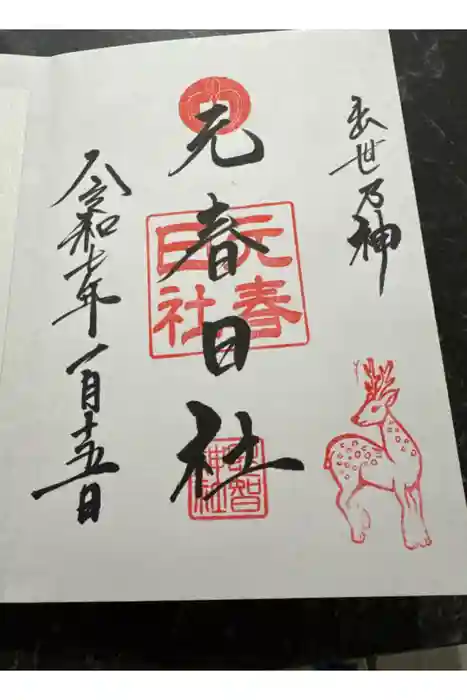 出世乃神
元春日社
元春日社
恩智神社
令和七年一月十五日